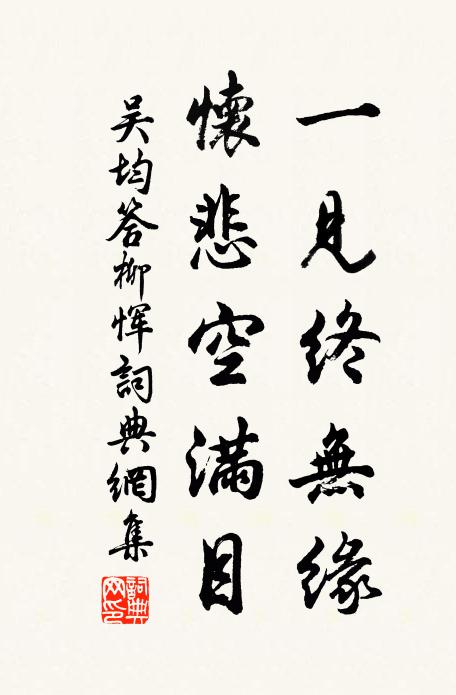 一見終無緣
懷悲空滿目
吴均答柳惲詞典網集
詞典網印